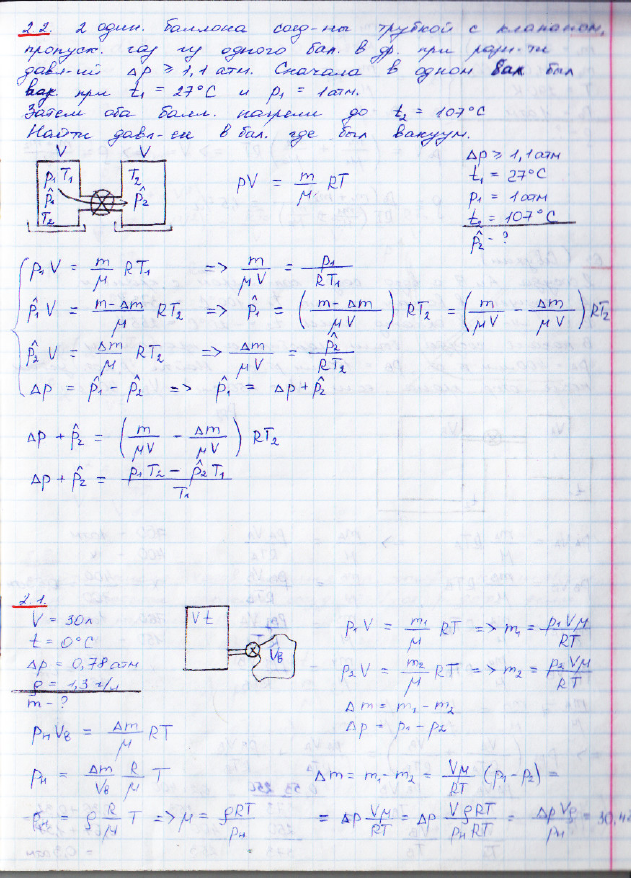 2.2. 2 один. баллона соед-ны трубкой с клапаном,
пропуск. газ из одного бал. в др. при разн-ти
давл-ий Δp ≥ 1,1 атм. Сначала в одном бал был
вак. при t₁ = 27°C и p₁ = 1атм.
Затем оба балл. нагрели до t₂ = 107°C
Найти давл-ие в бал. где был вакуум.
V V
p₁ T₁ T₂
p̂₁ p̂₂
T₂
pV = m/μ RT
Δp ≥ 1,1 атм
t₁ = 27°C
p₁ = 1атм
t₂ = 107°C
p̂₂ - ?
p₁V = m/μ RT₁ => m/μV = p₁/RT₁
p̂₁V = (m-Δm)/μ RT₂ => p̂₁ = ((m-Δm)/μV) RT₂ = (m/μV - Δm/μV) RT₂
p̂₂V = Δm/μ RT₂ => Δm/μV = p̂₂/RT₂
Δp = p̂₁ - p̂₂ => p̂₁ = Δp + p̂₂
Δp + p̂₂ = (m/μV - Δm/μV) RT₂
Δp + p̂₂ = (p₁T₂ - p̂₂T₁)/T₁
2.1.
V = 30л
t = 0°C
Δp = 0,78 атм
ρ = 1,3 г/л
m - ?
V t
Vв
p₁V = m₁/μ RT => m₁ = p₁Vμ/RT
p₂V = m₂/μ RT => m₂ = p₂Vμ/RT
Δm = m₁ - m₂
Δp = p₁ - p₂
pнVв = Δm/μ RT
pн = Δm/Vв R/μ T
Δm = m₁ - m₂ = Vμ/RT (p₁ - p₂) =
pн = ρ R/μ T => μ = ρRT/pн
= Δp Vμ/RT = Δp VρRT/pнRT = ΔpVρ/pн = 30,4г